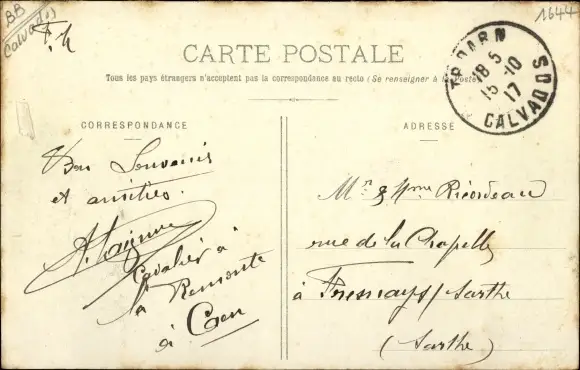 BB
Calvados
1644
CARTE POSTALE
Tous les pays étrangers n'acceptent pas la correspondance au recto (Se renseigner à la Poste)
TROARN
18 5
15-10
17
CALVADOS
CORRESPONDANCE
Bon Souvenirs
et amitiés.
Cavalier à
la Remonte
à Caen
ADRESSE
Mr & Mme Ricordeau
rue de la Chapelle
à Fresnay s/ Sarthe
(Sarthe)